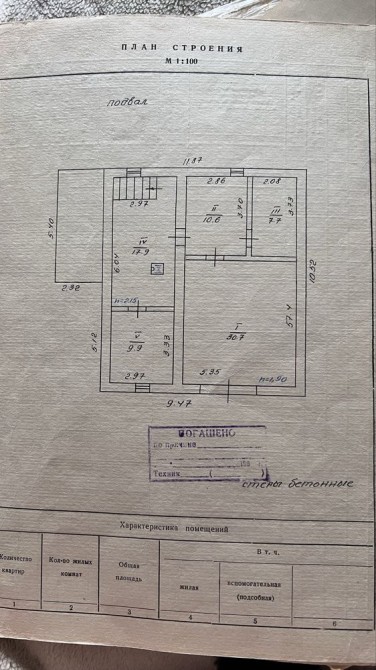 ПЛАН СТРОЕНИЯ
М 1:100
подвал
11.87
2.97
2.86
2.08
5.40
IV
17.9
6.04
II
10.6
3.70
III
7.7
3.73
10.52
2.32
н=2.15
I
30.7
5.74
5.12
V
9.9
3.33
2.97
5.35
9.47
ПОГАШЕНО
по причине
Техник ( )
стены бетонные
Характеристика помещений
Количество квартир
Кол-во жилых комнат
Общая площадь
В т. ч.
жилая
вспомогательная (подсобная)
1 2 3 4 5 6